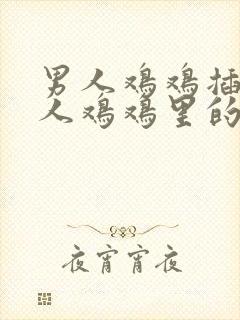 男人鸡鸡插
人鸡鸡里的
夜宵宵夜